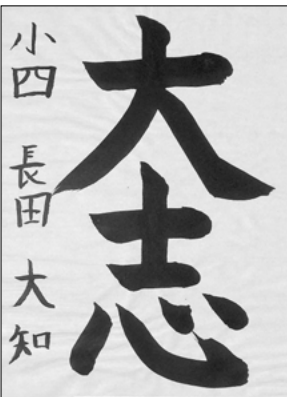 大志
小四 長田 大知